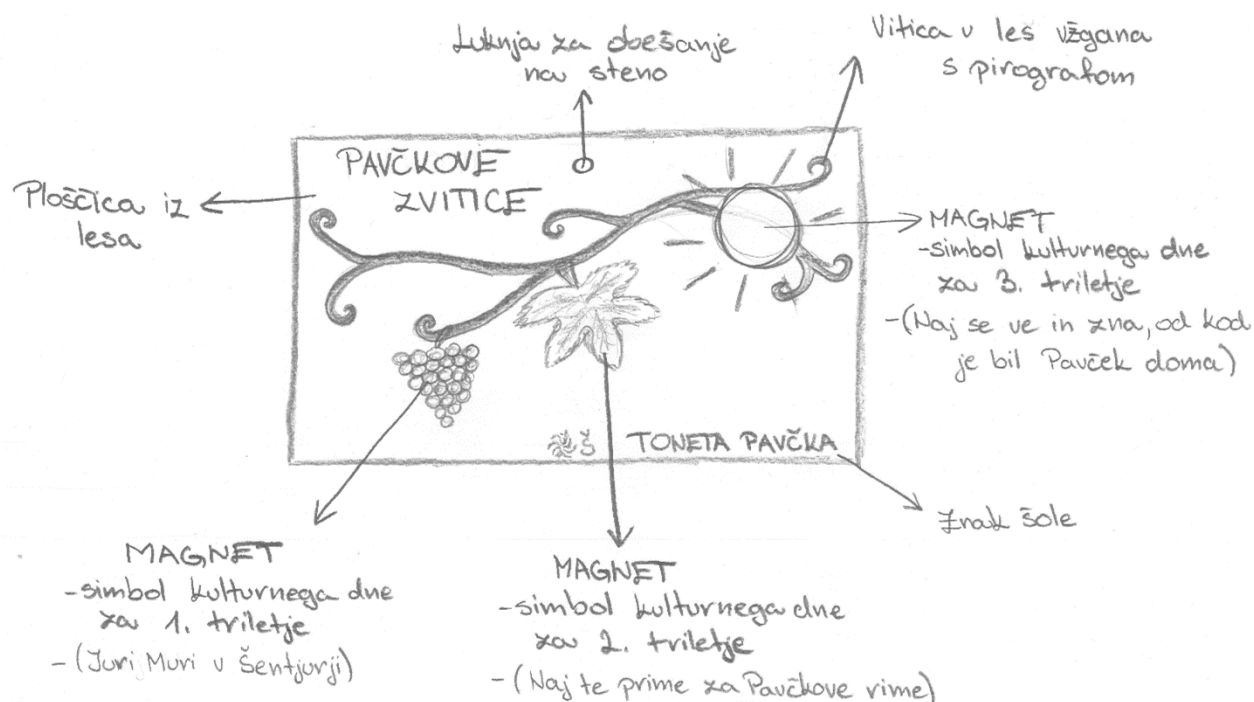 Luknja za obešanje
na steno
Vitica v les vžgana
s pirografom
PAVČKOVE
ZVITICE
Ploščica iz
lesa
MAGNET
-simbol kulturnega dne
za 3. triletje
-(Naj se ve in zna, od kod
je bil Pavček doma)
Š TONETA PAVČKA
Znak šole
MAGNET
-simbol kulturnega dne
za 1. triletje
-(Juri Muri v Šentjurji)
MAGNET
-simbol kulturnega dne
za 2. triletje
-(Naj te prime za Pavčkove rime)